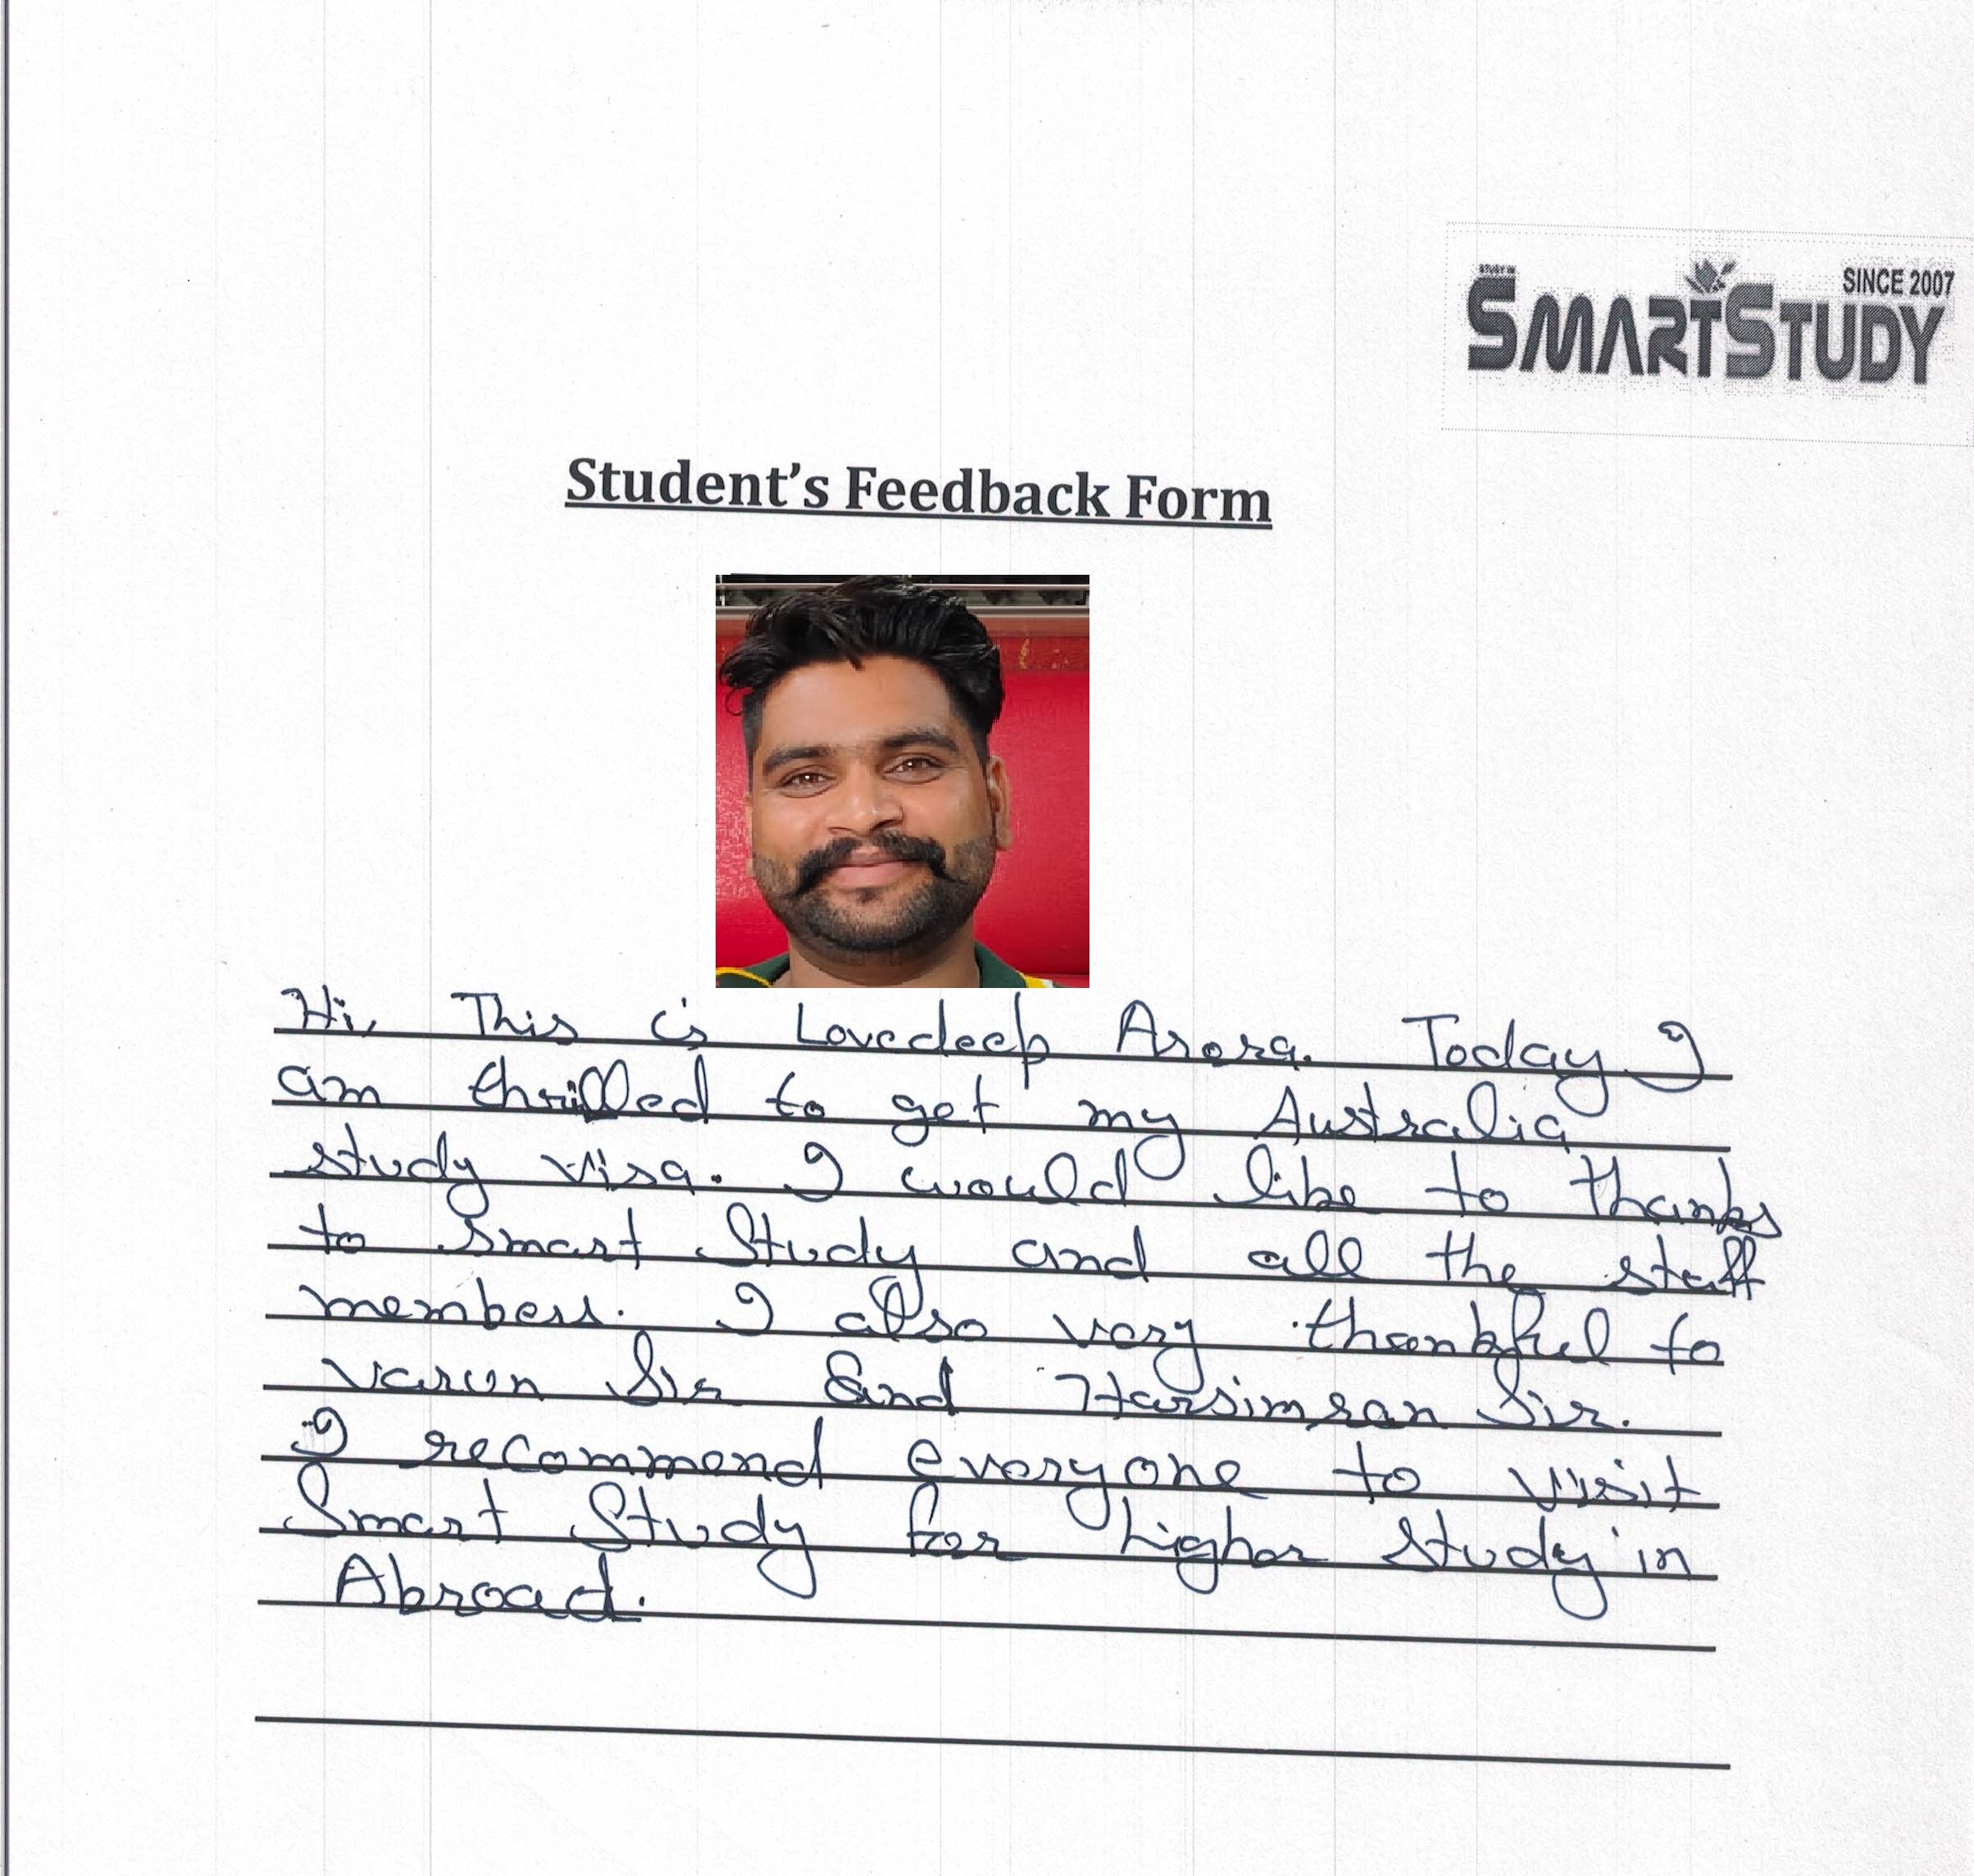 STUDY IN
SINCE 2007
SMARTSTUDY
Student's Feedback Form
Hi, This is Lovedeep Arora. Today I
am thrilled to get my Australia
study visa. I would like to thanks
to Smart Study and all the staff
members. I also very thankful to
Varun Sir and Harsimran Sir.
I recommend everyone to visit
Smart Study for higher study in
Abroad.